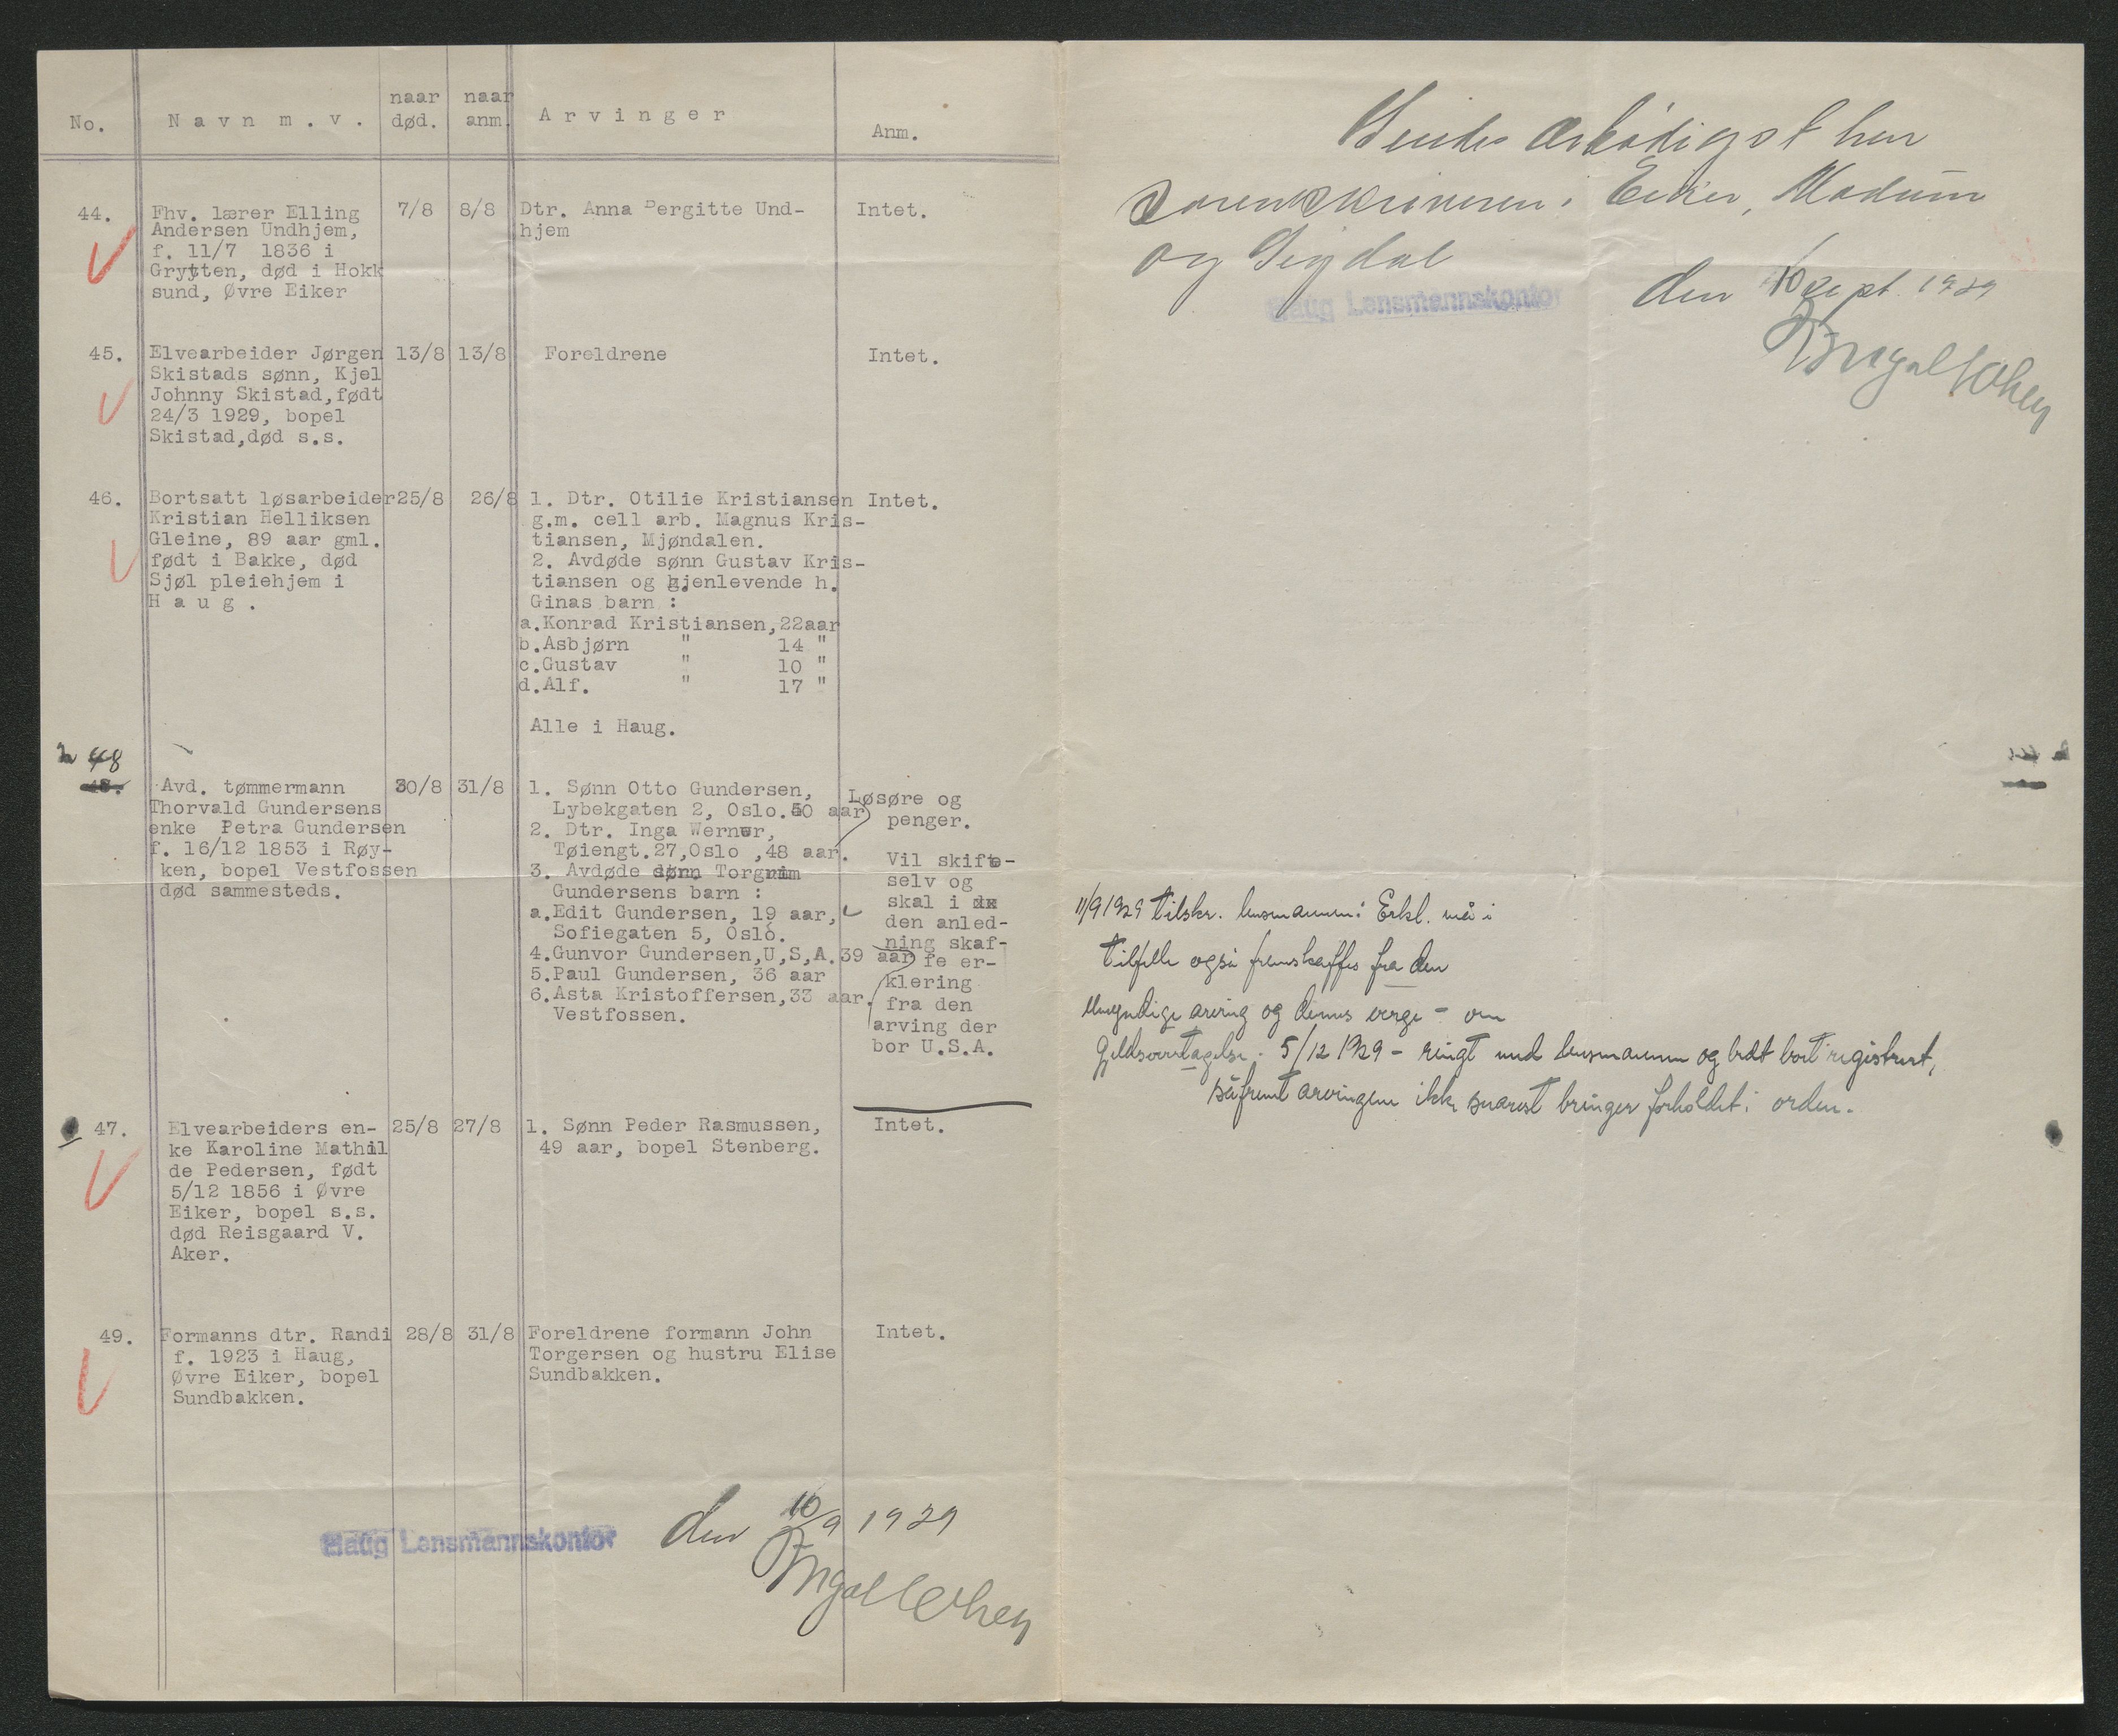 No. Navn m.v. naar død. naar anm. Arvinger Anm.
44. Fhv. lærer Elling 7/8 8/8 Dtr. Anna Bergitte Und- Intet.
Andersen Undhjem, hjem
f. 11/7 1836 i
Grytten, død i Hokk
sund, Øvre Eiker
45. Elvearbeider Jørgen 13/8 13/8 Foreldrene Intet.
Skistads sønn, Kjel
Johnny Skistad, født
24/3 1929, bopel
Skistad, død s.s.
46. Bortsatt løsarbeider 25/8 26/8 1. Dtr. Otilie Kristiansen Intet.
Kristian Helliksen g.m. cell arb. Magnus Kris-
Gleine, 89 aar gml. tiansen, Mjøndalen.
født i Bakke, død 2. Avdøde sønn Gustav Kris-
Sjøl pleiehjem i tiansen og gjenlevende h.
Haug. Ginas barn :
a. Konrad Kristiansen, 22aar
b. Asbjørn " 14 "
c. Gustav " 10 "
d. Alf. " 17 "
Alle i Haug.
48
Avd. tømmermann 30/8 31/8 1. Sønn Otto Gundersen, Løsøre og
Thorvald Gundersens Lybekgaten 2, Oslo. 50 aar penger.
enke Petra Gundersen 2. Dtr. Inga Werner,
f. 16/12 1853 i Røy- Tøiengt. 27, Oslo, 48 aar. Vil skifte-
ken, bopel Vestfossen 3. Avdøde sønn Torgrim selv og
død sammesteds. Gundersens barn : skal i
a. Edit Gundersen, 19 aar, den anled-
Sofiegaten 5, Oslo. ning skaf-
4. Gunvor Gundersen, U,S,A. 39 aar fe er-
5. Paul Gundersen, 36 aar klering
6. Asta Kristoffersen, 33 aar. fra den
Vestfossen. arving der
bor U.S.A.
47. Elvearbeiders en- 25/8 27/8 1. Sønn Peder Rasmussen, Intet.
ke Karoline Mathil 49 aar, bopel Stenberg.
de Pedersen, født
5/12 1856 i Øvre
Eiker, bopel s.s.
død Reisgaard V.
Aker.
49. Formanns dtr. Randi 28/8 31/8 Foreldrene formann John Intet.
f. 1923 i Haug, Torgersen og hustru Elise
Øvre Eiker, bopel Sundbakken.
Sundbakken.
Haug Lensmannskontor den 10/9 1929
Sendes ærbødigst herr
Sorenskriveren i Eiker, Modum
og Sigdal
Haug Lensmannskontor den 10 sept. 1929
11/9 1929 tilskr. lensmannen: Erkl. må i
tilfelle også fremskaffes fra den
umyndige arving og dennes verge - om
gjeldsovertagelse. 5/12 1929 - ringt med lensmannen og bedt boet registrert,
såfremt arvingene ikke snarest bringer forholdet i orden.